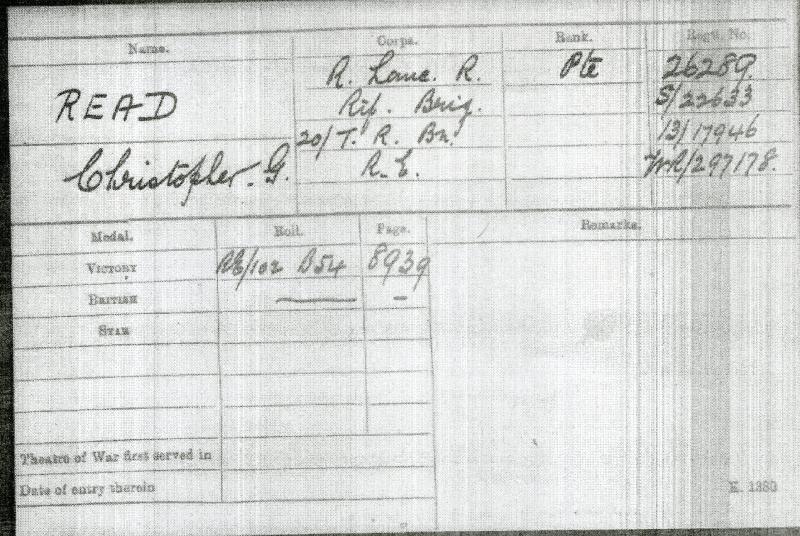 Name. Corps. Rank. Regtl. No.
READ R. Lanc. R. Pte 26289.
Rif. Brig. S/22633
20/T. R. Bn. 13/17946
Christopher. G. R.E. WR/297178.
Medal. Roll. Page. Remarks.
VICTORY RE/102 B54 8939
BRITISH — –
STAR
Theatre of War first served in
Date of entry therein
K. 1380